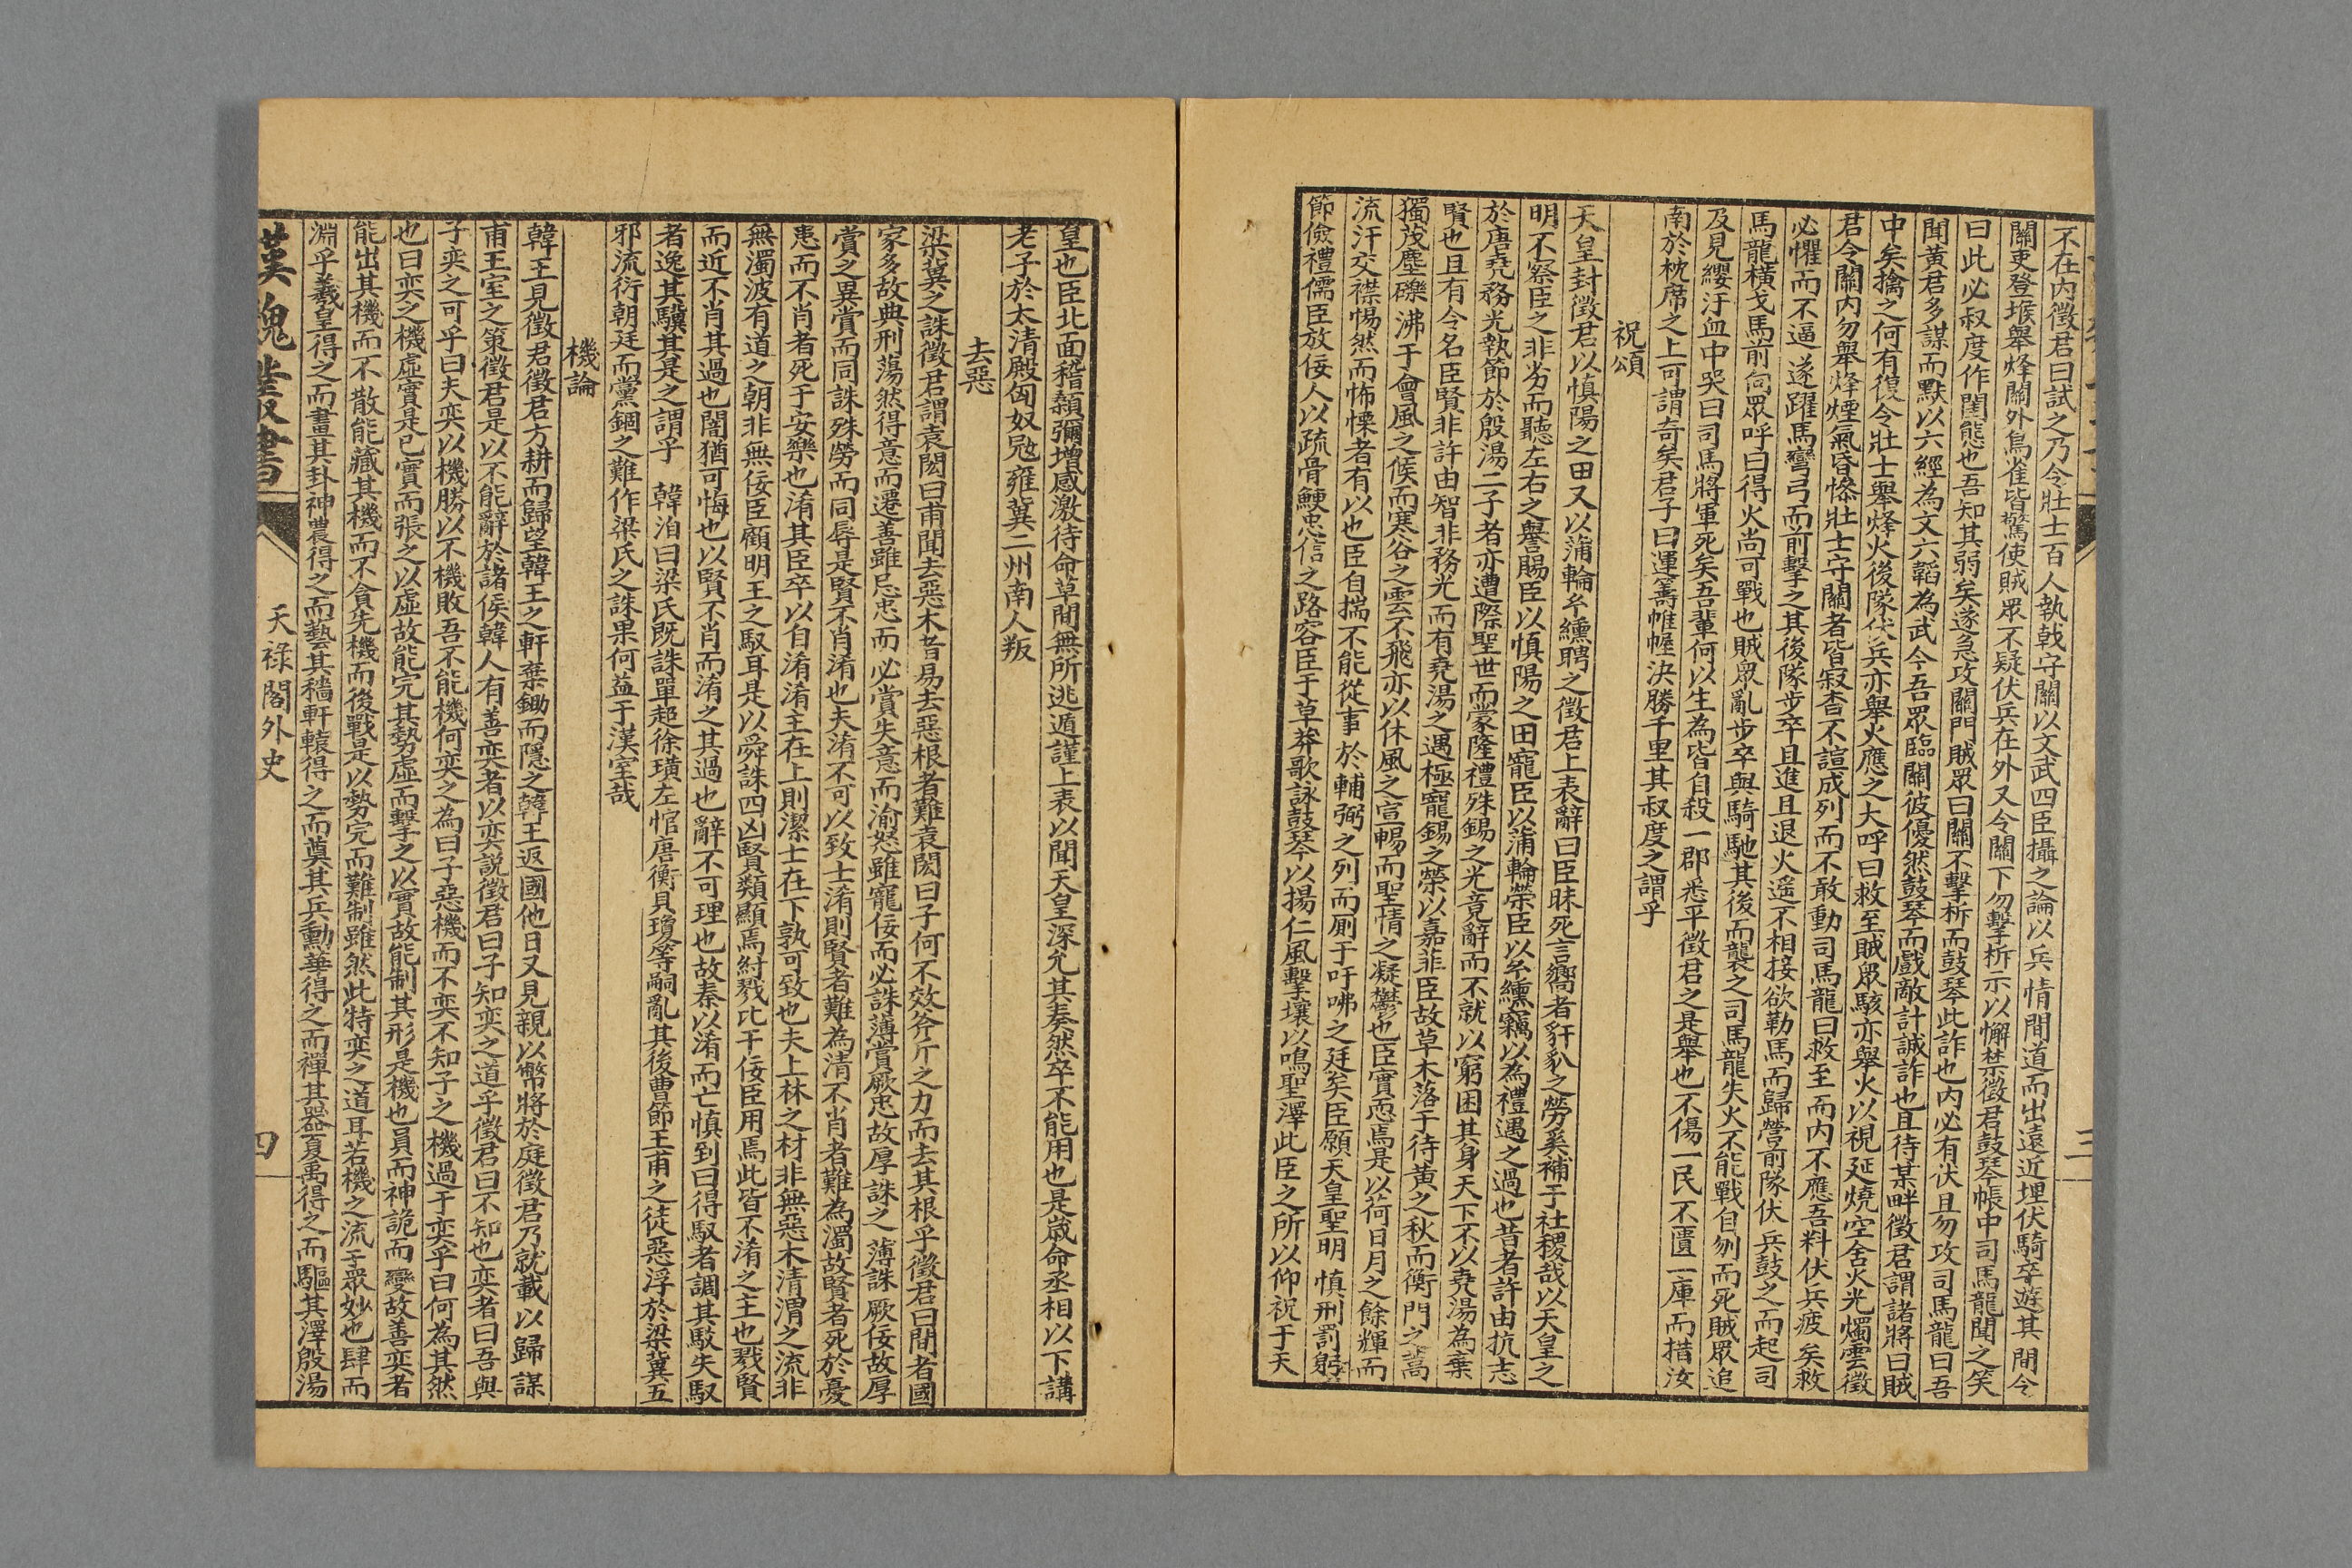 不在内徵君曰試之乃令壯士百人執戟守關以文武四臣攝之論以兵情間道而出遠近埋伏騎卒遊其間令
關吏登堠舉烽關外鳥雀皆驚使賊眾不疑伏兵在外又令關下勿擊柝示以懈禁徵君鼓琴帳中司馬龍聞之笑
曰此必叔度作閨態也吾知其弱矣遂急攻關門賊眾曰關不擊柝而鼓琴此詐也内必有伏且勿攻司馬龍曰吾
聞黃君多謀而默以六經為文六韜為武今吾眾臨關彼優然鼓琴而戲敵計誠詐也且待某畔徵君謂諸將曰賊
中矣擒之何有復令壯士舉烽火後隊伏兵亦舉火應之大呼曰救至賊眾駭亦舉火以視延燒空舍火光燭雲徵
君令關内勿舉烽煙氣昏慘壯士守關者皆寂杳不諠成列而不敢動司馬龍曰救至而内不應吾料伏兵疲矣救
必懼而不逼遂躍馬彎弓而前擊之其後隊步卒且進且退火遙不相接欲勒馬而歸營前隊伏兵鼓之而起司
馬龍橫戈馬前向眾呼曰得火尚可戰也賊眾亂步卒與騎馳其後而襲之司馬龍失火不能戰自刎而死賊眾追
及見纓汙血中哭曰司馬將軍死矣吾輩何以生為皆自殺一郡悉平徵君之是舉也不傷一民不匱一庫而措汝
南於枕席之上可謂奇矣君子曰運籌帷幄決勝千里其叔度之謂乎
祝頌
天皇封徵君以慎陽之田又以蒲輪糸纁聘之徵君上表辭曰臣昧死言嚮者豻豺之勞奚補于社稷哉以天皇之
明不察臣之非劣而聽左右之譽賜臣以慎陽之田寵臣以蒲輪榮臣以糸纁竊以為禮遇之過也昔者許由抗志
於唐堯務光執節於殷湯二子者亦遭際聖世而蒙隆禮殊錫之光竟辭而不就以窮困其身天下不以堯湯為棄
賢也且有令名臣賢非許由智非務光而有堯湯之遇極寵錫之榮以嘉非臣故草木落于待黃之秋而衡門之蒿
獨茂塵礫沸于會風之候而寒谷之雲不飛亦以休風之宣暢而聖情之凝鬱也臣實恧焉是以荷日月之餘輝而
流汗交襟惕然而怖慄者有以也臣自揣不能從事於輔弼之列而厠于吁咈之廷矣臣願天皇聖明慎刑罰躬
節儉禮儒臣放佞人以疏骨鯁忠信之路容臣于草莽歌詠鼓琴以揚仁風擊壤以鳴聖澤此臣之所以仰祝于天
三
皇也臣北面稽顙彌增感激待命草間無所逃遁謹上表以聞天皇深允其奏然卒不能用也是歲命丞相以下講
老子於太清殿匈奴冦雍冀二州南人叛
去惡
梁冀之誅徵君謂袁閎曰甫聞去惡木者易去惡根者難袁閎曰子何不效斧斤之力而去其根乎徵君曰間者國
家多故典刑蕩然得意而遷善雖忌忠而必賞失意而渝怒雖寵佞而必誅薄賞厥忠故厚誅之薄誅厥佞故厚
賞之異賞而同誅殊勞而同辱是賢不肖淆也夫淆不可以致士淆則賢者難為清不肖者難為濁故賢者死於憂
患而不肖者死于安樂也淆其臣卒以自淆淆主在上則潔士在下孰可致也夫上林之材非無惡木清渭之流非
無濁波有道之朝非無佞臣顧明王之馭耳是以舜誅四凶賢類顯焉紂戮比干佞臣用焉此皆不淆之主也戮賢
而近不肖其過也闇猶可悔也以賢不肖而淆之其過也辭不可理也故秦以淆而亡慎到曰得馭者調其駁失馭
者逸其驥其是之謂乎 韓洎曰梁氏既誅單超徐璜左悺唐衡具瓊等嗣亂其後曹節王甫之徒惡浮於梁冀五
邪流衍朝廷而黨錮之難作梁氏之誅果何益于漢室哉
機論
韓王見徵君徵君方耕而歸望韓王之軒棄鋤而隱之韓王返國他日又見親以幣將於庭徵君乃就載以歸謀
甫王室之策徵君是以不能辭於諸侯韓人有善奕者以奕説徵君曰子知奕之道乎徵君曰不知也奕者曰吾與
子奕之可乎曰夫奕以機勝以不機敗吾不能機何奕之為曰子惡機而不奕不知子之機過于奕乎曰何為其然
也曰奕之機虛實是已實而張之以虛故能完其勢虛而擊之以實故能制其形是機也員而神詭而變故善奕者
能出其機而不散能藏其機而不貪先機而後戰是以勢完而難制雖然此特奕之道耳若機之流于眾妙也肆而
淵乎羲皇得之而畫其卦神農得之而藝其穡軒轅得之而奠其兵勳華得之而禪其器夏禹得之而驅其澤殷湯
漢魏叢書
天祿閣外史
四